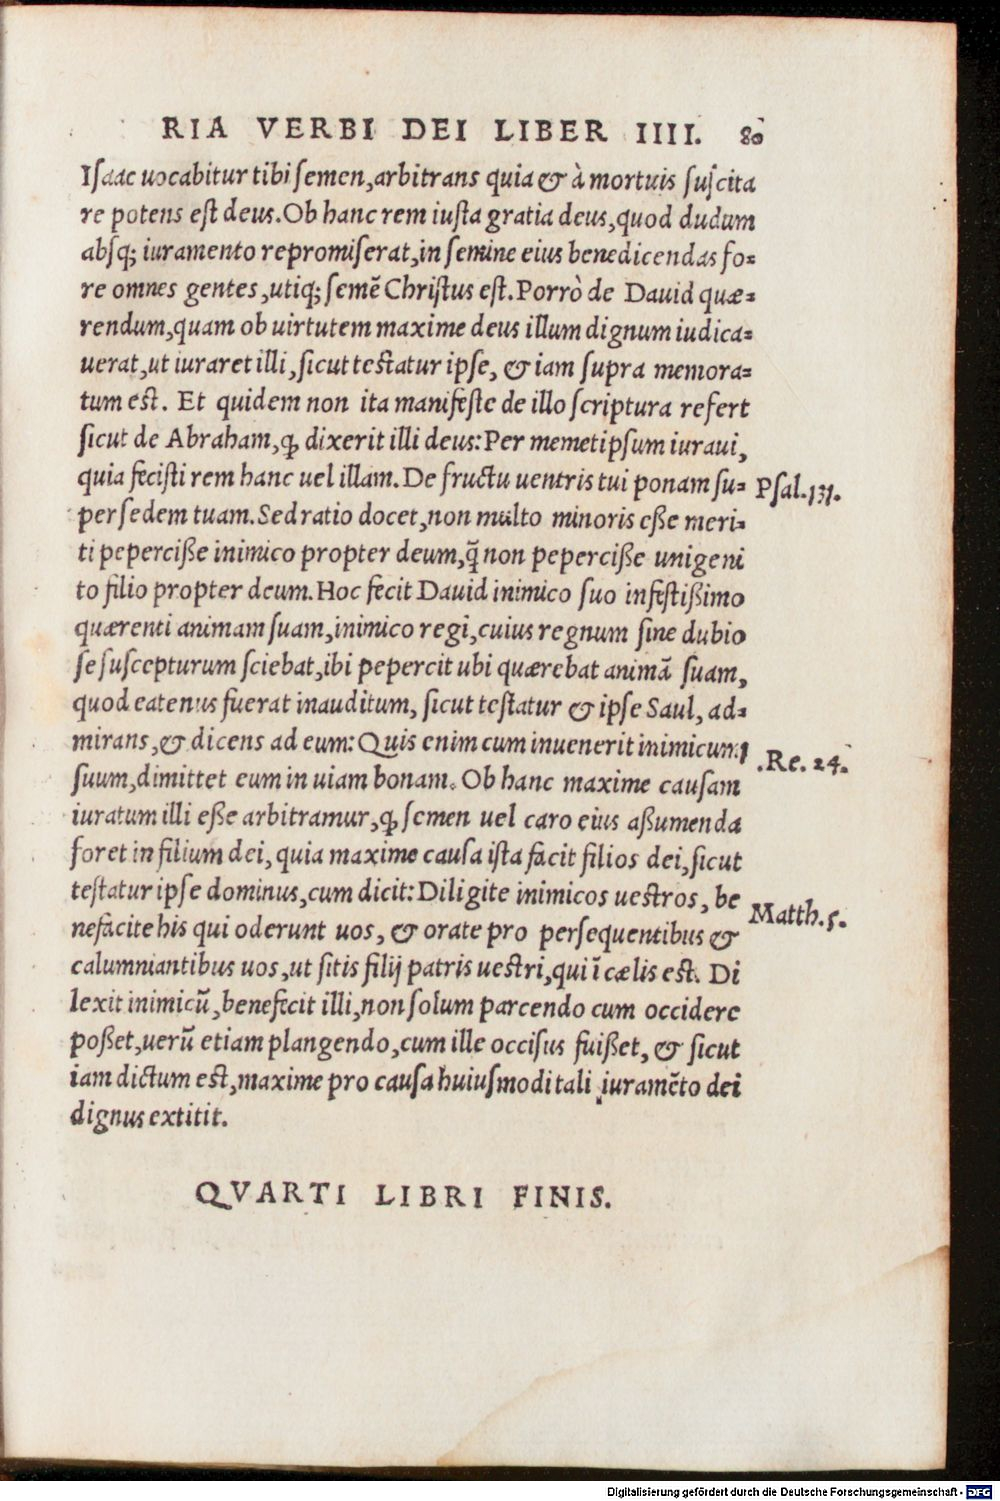 RIA VERBI DEI LIBER IIII. 80
Isaac uocabitur tibi semen, arbitrans quia & à mortuis suscita
re potens est deus. Ob hanc rem iusta gratia deus, quod dudum
absq; iuramento repromiserat, in semine eius benedicendas fo=
re omnes gentes, utiq; semē Christus est. Porrò de Dauid quæ=
rendum, quam ob uirtutem maxime deus illum dignum iudica=
uerat, ut iuraret illi, sicut testatur ipse, & iam supra memora=
tum est. Et quidem non ita manifeste de illo scriptura refert
sicut de Abraham, ꝙ dixerit illi deus: Per memetipsum iuraui,
quia fecisti rem hanc uel illam. De fructu uentris tui ponam su=
Psal. 131.
per sedem tuam. Sed ratio docet, non multo minoris esse meri=
ti peperciße inimico propter deum, q̃ non peperciße unigeni
to filio propter deum. Hoc fecit Dauid inimico suo infestißimo
quærenti animam suam, inimico regi, cuius regnum sine dubio
se suscepturum sciebat, ibi pepercit ubi quærebat animā suam,
quod eatenus fuerat inauditum, sicut testatur & ipse Saul, ad=
mirans, & dicens ad eum: Quis enim cum inuenerit inimicum
1.Re. 24.
suum, dimittet eum in uiam bonam. Ob hanc maxime causam
iuratum illi eße arbitramur, ꝙ semen uel caro eius aßumenda
foret in filium dei, quia maxime causa ista facit filios dei, sicut
testatur ipse dominus, cum dicit: Diligite inimicos uestros, be
Matth. 5.
nefacite his qui oderunt uos, & orate pro persequentibus &
calumniantibus uos, ut sitis filij patris uestri, qui ī cælis est. Di
lexit inimicū, benefecit illi, non solum parcendo cum occidere
poßet, uerū etiam plangendo, cum ille occisus fuißet, & sicut
iam dictum est, maxime pro causa huiusmodi tali iuramēto dei
dignus extitit.
QVARTI LIBRI FINIS.
Digitalisierung gefördert durch die Deutsche Forschungsgemeinschaft - DFG